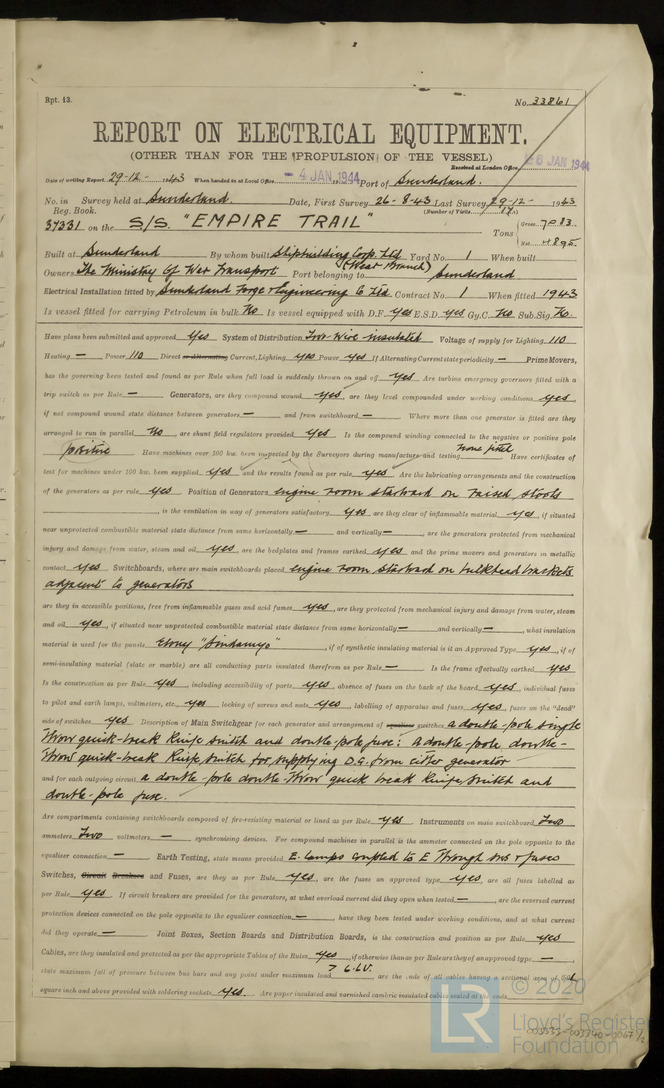 Rpt. 13.
No. 33861
REPORT ON ELECTRICAL EQUIPMENT.
(OTHER THAN FOR THE PROPULSION OF THE VESSEL)
Received at London Office 26 JAN 1944
Date of writing Report 29-12- 1943 When handed in at Local Office - 4 JAN. 1944 Port of Sunderland.
No. in Survey held at Sunderland. Date, First Survey 26-8-43 Last Survey 29-12- 1943
Reg. Book. (Number of Visits)
37331 on the S/S. "EMPIRE TRAIL" Tons Gross 7083
Net 4895
Built at Sunderland By whom built Shipbuilding Corp. Ltd (Wear Branch) Yard No. 1 When built
Owners The Ministry Of War Transport Port belonging to Sunderland
Electrical Installation fitted by Sunderland Forge & Engineering Co Ltd Contract No. 1 When fitted 1943
Is vessel fitted for carrying Petroleum in bulk No Is vessel equipped with D.F. yes E.S.D. yes Gy.C. No Sub.Sig. No.
Have plans been submitted and approved Yes System of Distribution Two-wire insulated Voltage of supply for Lighting 110
Heating — Power 110 Direct or Alternating Current, Lighting yes Power yes If Alternating Current state periodicity — Prime Movers,
has the governing been tested and found as per Rule when full load is suddenly thrown on and off yes Are turbine emergency governors fitted with a
trip switch as per Rule — Generators, are they compound wound yes, are they level compounded under working conditions yes,
if not compound wound state distance between generators — and from switchboard — Where more than one generator is fitted are they
arranged to run in parallel No, are shunt field regulators provided yes Is the compound winding connected to the negative or positive pole
positive Have machines over 100 kw. been inspected by the Surveyors during manufacture and testing none fitted Have certificates of
test for machines under 100 kw. been supplied yes and the results found as per rule yes Are the lubricating arrangements and the construction
of the generators as per rule yes Position of Generators engine room starboard on raised stools
, is the ventilation in way of generators satisfactory yes are they clear of inflammable material yes, if situated
near unprotected combustible material state distance from same horizontally — and vertically —, are the generators protected from mechanical
injury and damage from water, steam and oil yes, are the bedplates and frames earthed yes and the prime movers and generators in metallic
contact yes Switchboards, where are main switchboards placed engine room starboard on bulkhead brackets
adjacent to generators
are they in accessible positions, free from inflammable gases and acid fumes yes, are they protected from mechanical injury and damage from water, steam
and oil yes, if situated near unprotected combustible material state distance from same horizontally — and vertically —, what insulation
material is used for the panels Ebony "Sindanyo", if of synthetic insulating material is it an Approved Type yes, if of
semi-insulating material (slate or marble) are all conducting parts insulated therefrom as per Rule — Is the frame effectually earthed yes
Is the construction as per Rule yes, including accessibility of parts yes, absence of fuses on the back of the board yes, individual fuses
to pilot and earth lamps, voltmeters, etc. yes locking of screws and nuts yes, labelling of apparatus and fuses yes, fuses on the "dead"
side of switches yes Description of Main Switchgear for each generator and arrangement of equaliser switches a double-pole single
throw quick-break knife switch and double-pole fuse: A double-pole double-
throw quick-break knife switch for supplying D.G. from either generator
and for each outgoing circuit a double-pole double-throw quick break knife switch and
double-pole fuse.
Are compartments containing switchboards composed of fire-resisting material or lined as per Rule yes Instruments on main switchboard Two
ammeters Two voltmeters — synchronising devices. For compound machines in parallel is the ammeter connected on the pole opposite to the
equaliser connection — Earth Testing, state means provided E. lamps coupled to E through sws & fuses
Switches, Circuit Breakers and Fuses, are they as per Rule yes, are the fuses an approved type yes, are all fuses labelled as
per Rule yes If circuit breakers are provided for the generators, at what overload current did they open when tested —, are the reversed current
protection devices connected on the pole opposite to the equaliser connection —, have they been tested under working conditions, and at what current
did they operate — Joint Boxes, Section Boards and Distribution Boards, is the construction and position as per Rule yes
Cables, are they insulated and protected as per the appropriate Tables of the Rules yes, if otherwise than as per Rule are they of an approved type —,
state maximum fall of pressure between bus bars and any point under maximum load are the ends of all cables having a sectional area of
square inch and above provided with soldering sockets yes. Are paper insulated and varnished cambric insulated cables sealed at the ends
© 2020
LR
Lloyd's Register
Foundation